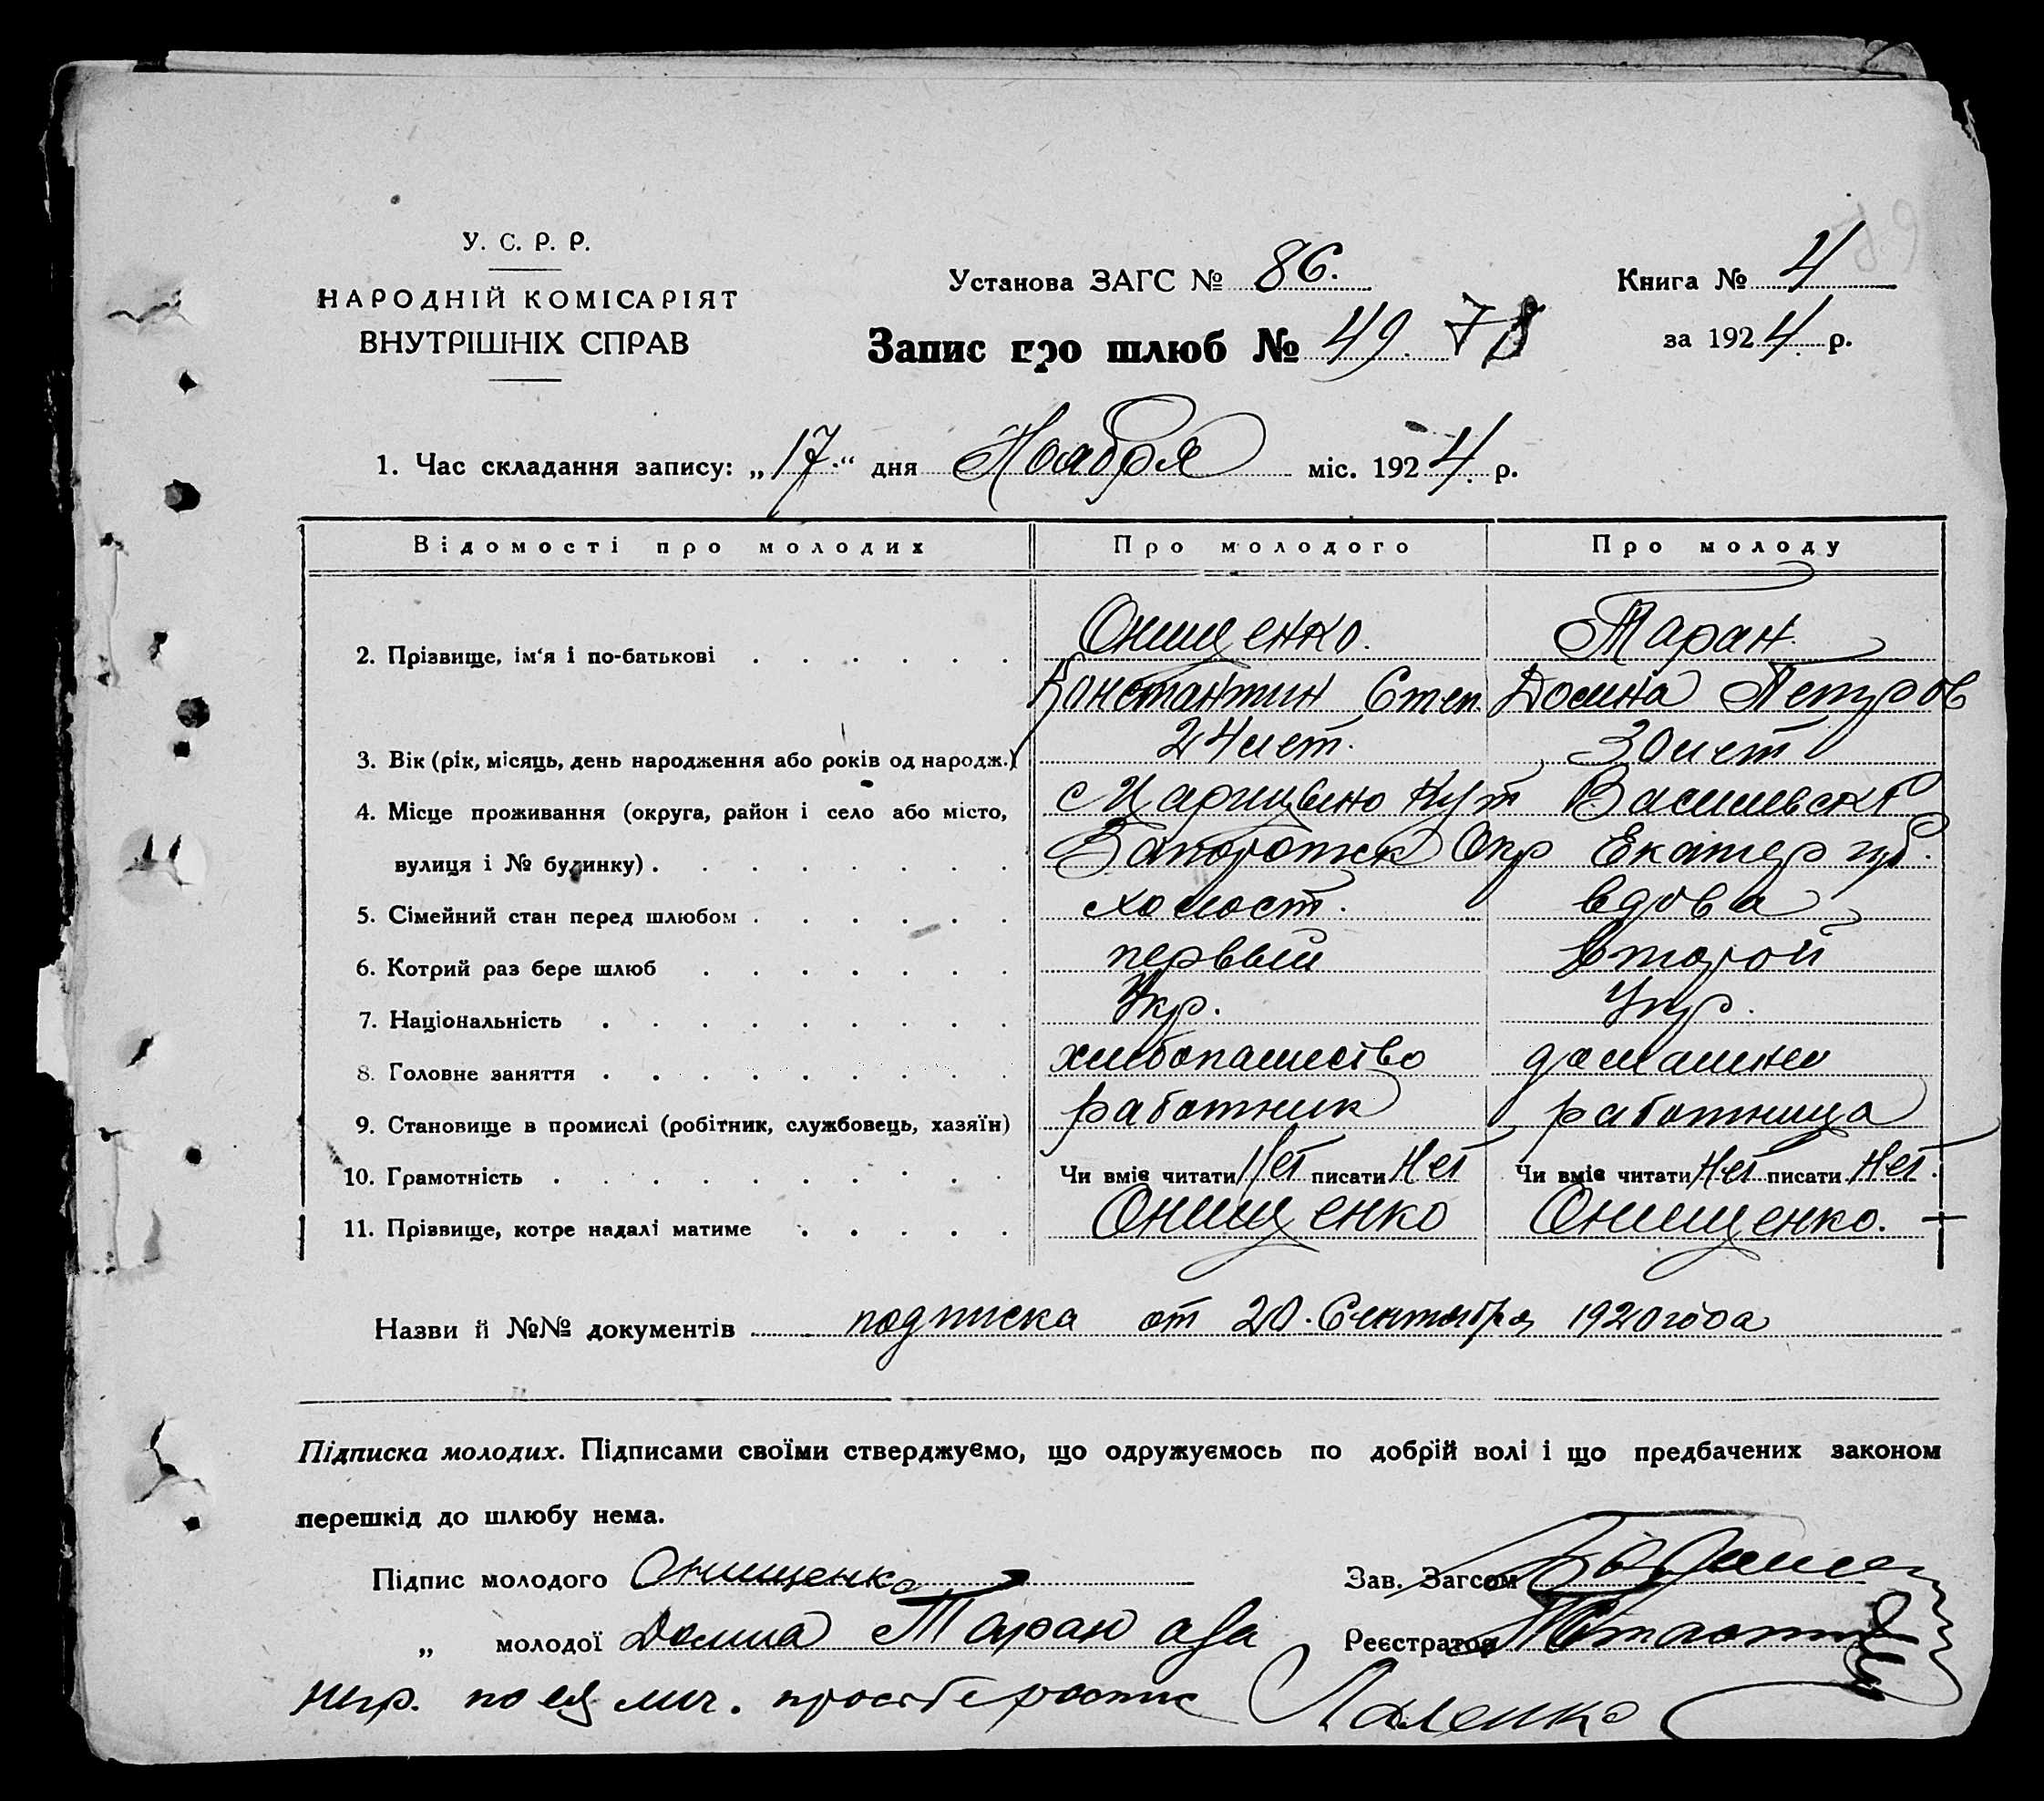 У. С. Р. Р.
НАРОДНІЙ КОМІСАРІЯТ
ВНУТРІШНІХ СПРАВ
Установа ЗАГС № 86.
Книга № 4
Запис про шлюб № 49. 78
за 1924 р.
1. Час складання запису: „17“ дня Ноября міс. 1924 р.
Відомості про молодих Про молодого Про молоду
2. Прізвище, ім‘я і по-батькові Онищенко. Таран.
Константин Степ. Домна Петров
3. Вік (рік, місяць, день народження або років од народж.) 24 лет. 30 лет
4. Місце проживання (округа, район і село або місто, с Царицыно Кут Василевск
вулиця і № будинку) Запорожск Окр Екатер губ.
5. Сімейний стан перед шлюбом холост. вдова
6. Котрий раз бере шлюб первый второй
7. Національність Укр. Укр.
8. Головне заняття хлебопашество домашнее
9. Становище в промислі (робітник, службовець, хазяїн) работник работница
10. Грамотність Чи вміє читати Нет писати Нет Чи вміє читати Нет писати Нет.
11. Прізвище, котре надалі матиме Онищенко Онищенко.
Назви й №№ документів подписка от 20. Сентября 1920 года
Підписка молодих. Підписами своїми стверджуємо, що одружуємось по добрій волі і що предбачених законом
перешкід до шлюбу нема.
Підпис молодого Онищенко
Зав. Загсом
„ молодої Домна Таран а за
Реєстратор
негр. по ея лич. просьбе роспис